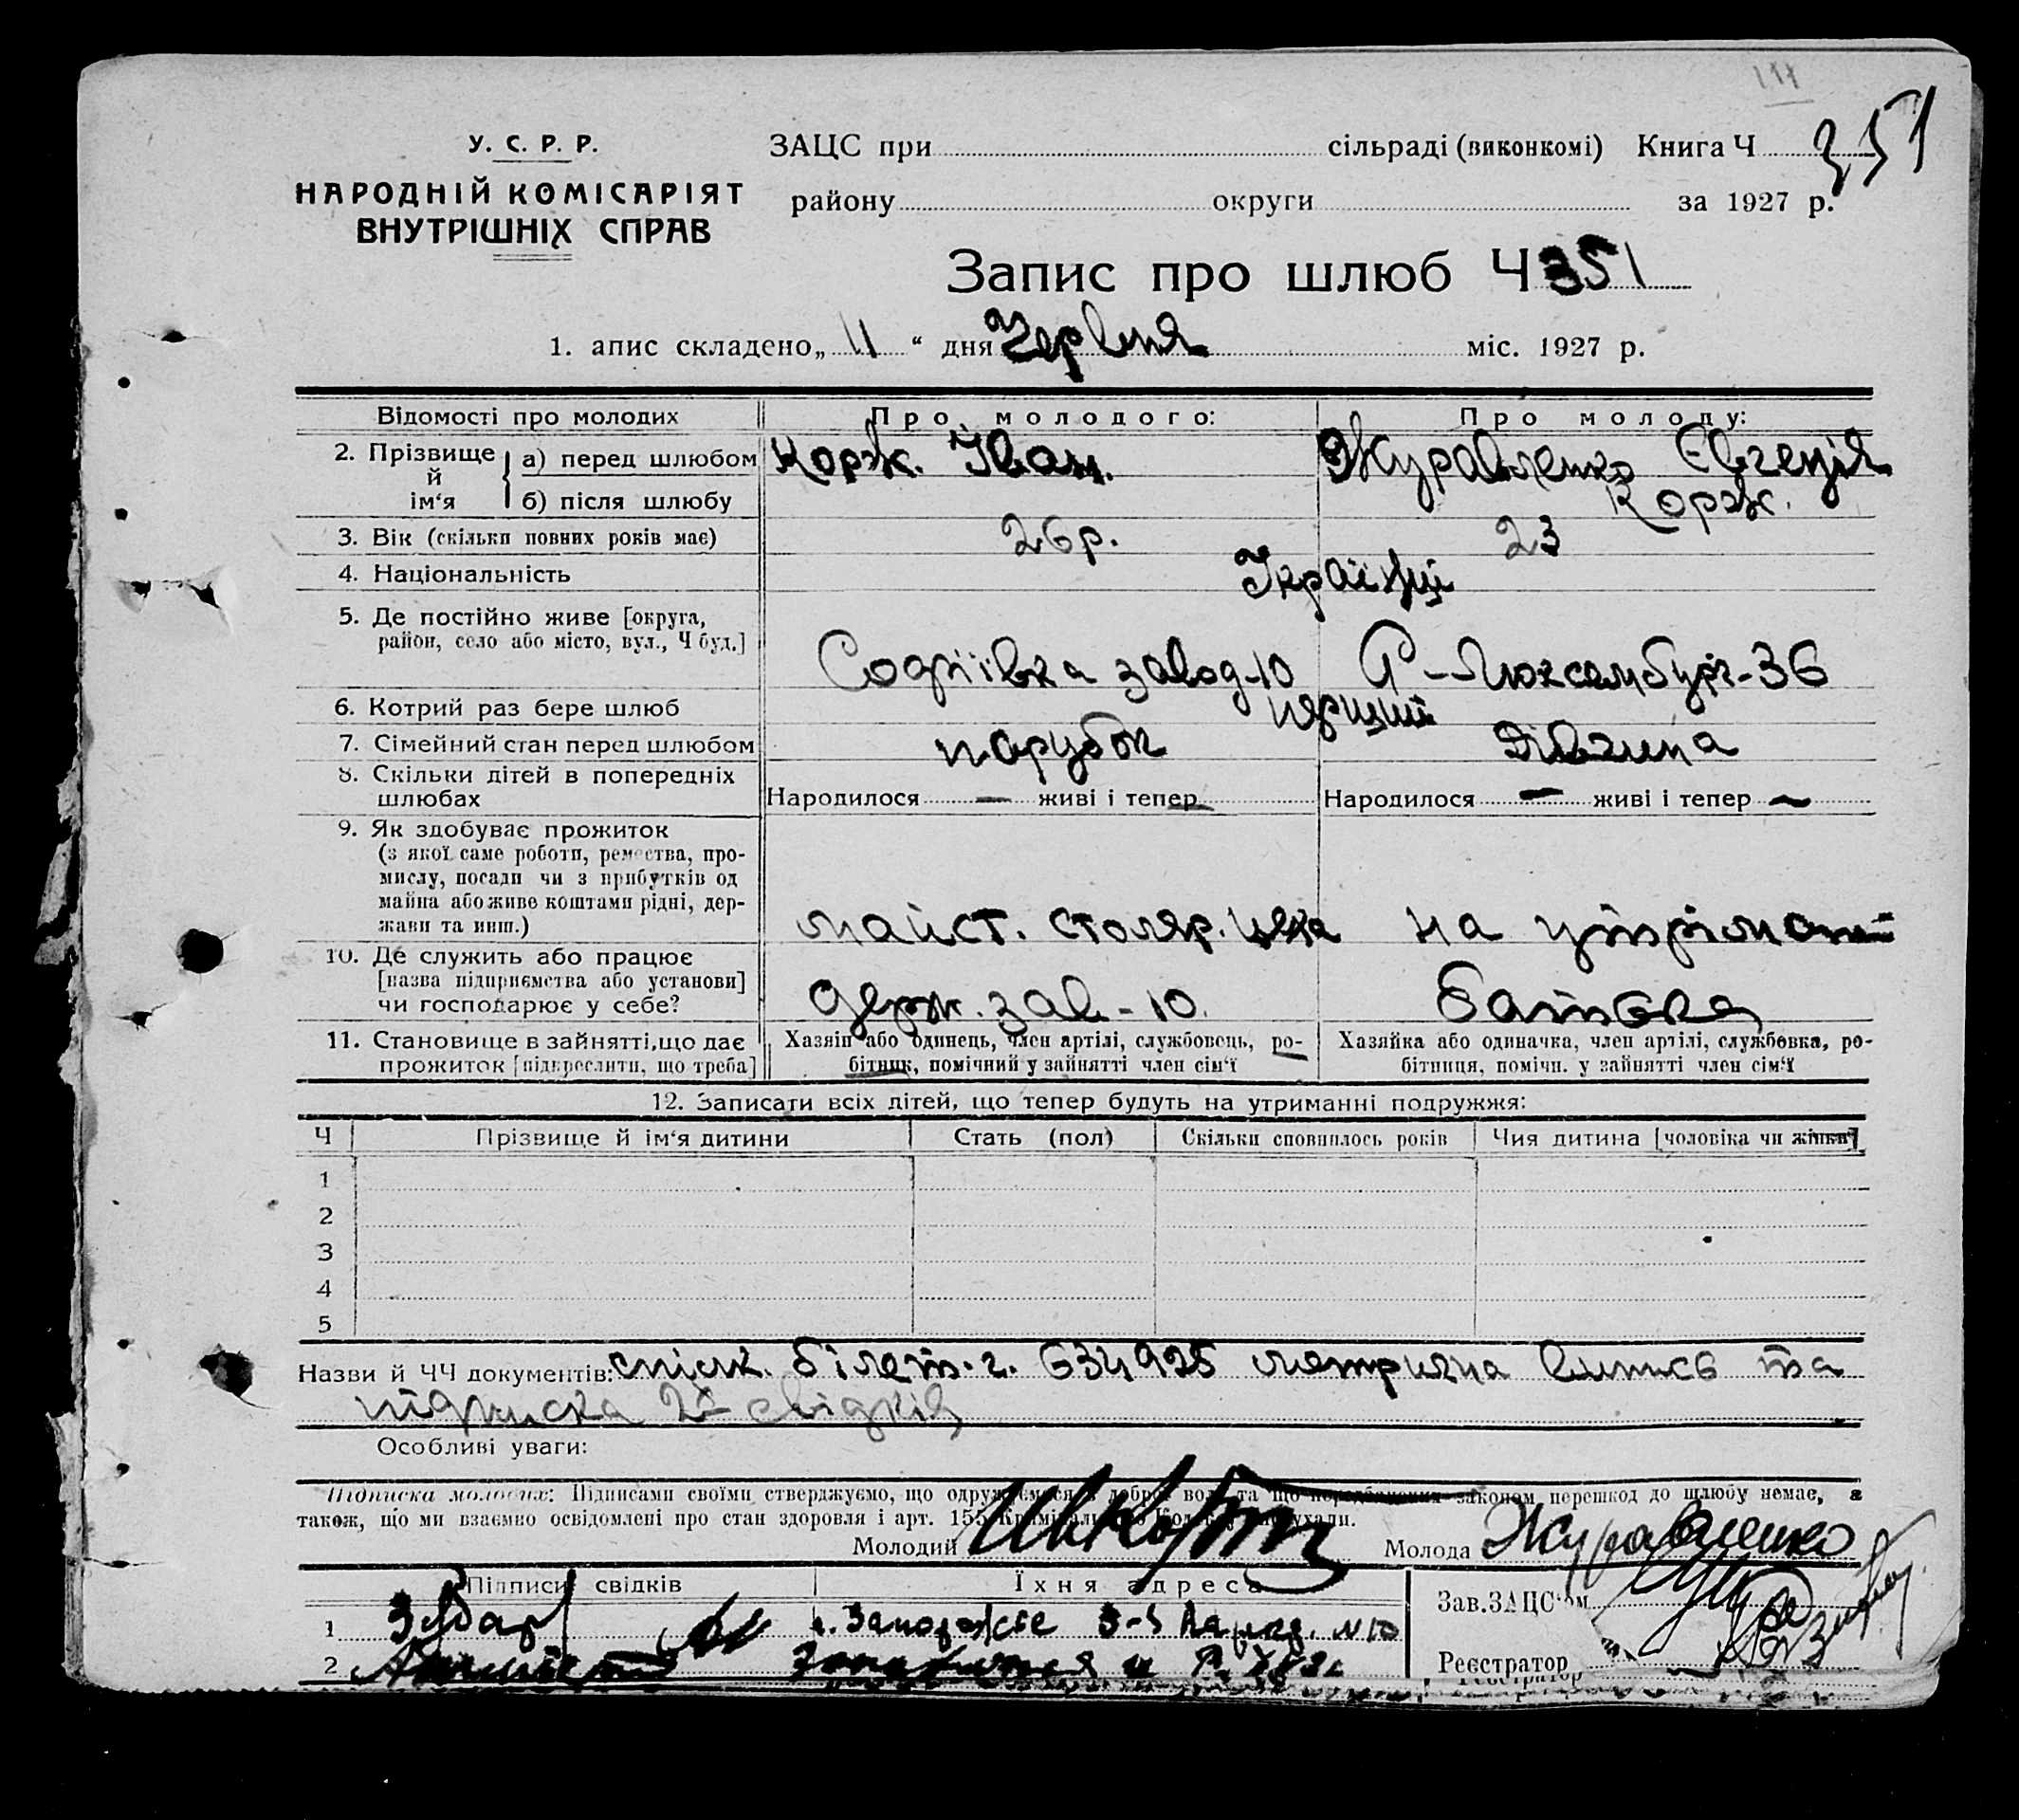 У. С. Р. Р.
НАРОДНІЙ КОМІСАРІЯТ
ВНУТРІШНІХ СПРАВ
ЗАЦС при сільраді (виконкомі) Книга Ч 351
району округи за 1927 р.
Запис про шлюб Ч 351
1. апис складено „ 11 “ дня Червня міс. 1927 р.
Відомості про молодих Про молодого: Про молоду:
2. Прізвище й ім‘я а) перед шлюбом Корж. Іван. Журавленко Євгенія
б) після шлюбу Корж.
3. Вік (скільки повних років має) 26 р. 23
4. Національність Українці
5. Де постійно живе [округа,
район, село або місто, вул., Ч буд.] Софіївка завод-10 Р-Люксембург-36
6. Котрий раз бере шлюб перший
7. Сімейний стан перед шлюбом парубок Дівчина
8. Скільки дітей в попередніх
шлюбах Народилося — живі і тепер — Народилося — живі і тепер —
9. Як здобуває прожиток
(з якої саме роботи, ремества, про-
мислу, посади чи з прибутків од
майна або живе коштами рідні, дер-
жави та инш.) майст. столяр. цеха на утрімані
10. Де служить або працює
[назва підприємства або установи]
чи господарює у себе? держ. зав-10. батька
11. Становище в зайнятті, що дає
прожиток [підкреслити, що треба]
Хазяін або одинець, член артілі, службовець, ро-
бітник, помічний у зайнятті член сім‘ї
Хазяйка або одиначка, член артілі, службовка, ро-
бітниця, помічн. у зайнятті член сім‘ї
12. Записати всіх дітей, що тепер будуть на утриманні подружжя:
Ч Прізвище й ім‘я дитини Стать (пол) Скільки сповнилось років Чия дитина [чоловіка чи жінки]
1
2
3
4
5
Назви й ЧЧ документів: спілк. білет. ч. 634925 метрична та
підписка 2х свідків
Особливі уваги:
Підписка молодих: Підписами своїми стверджуємо, що одружуємося з доброї волі та що передбачених законом перешкод до шлюбу немає, а
також, що ми взаємно освідомлені про стан здоровля і арт. 155 Кримінального
Молодий Молода Журавленко
Підписи свідків Їхня адреса Зав.ЗАЦС‘ом
1 Запоріжжє
2
Реєстратор